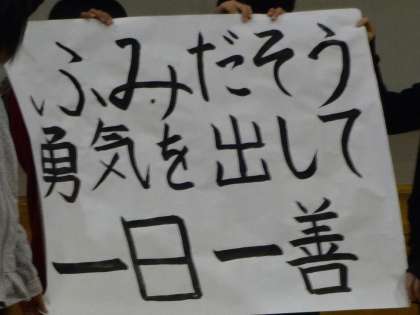 ふみだそう
勇気を出して
一日一善